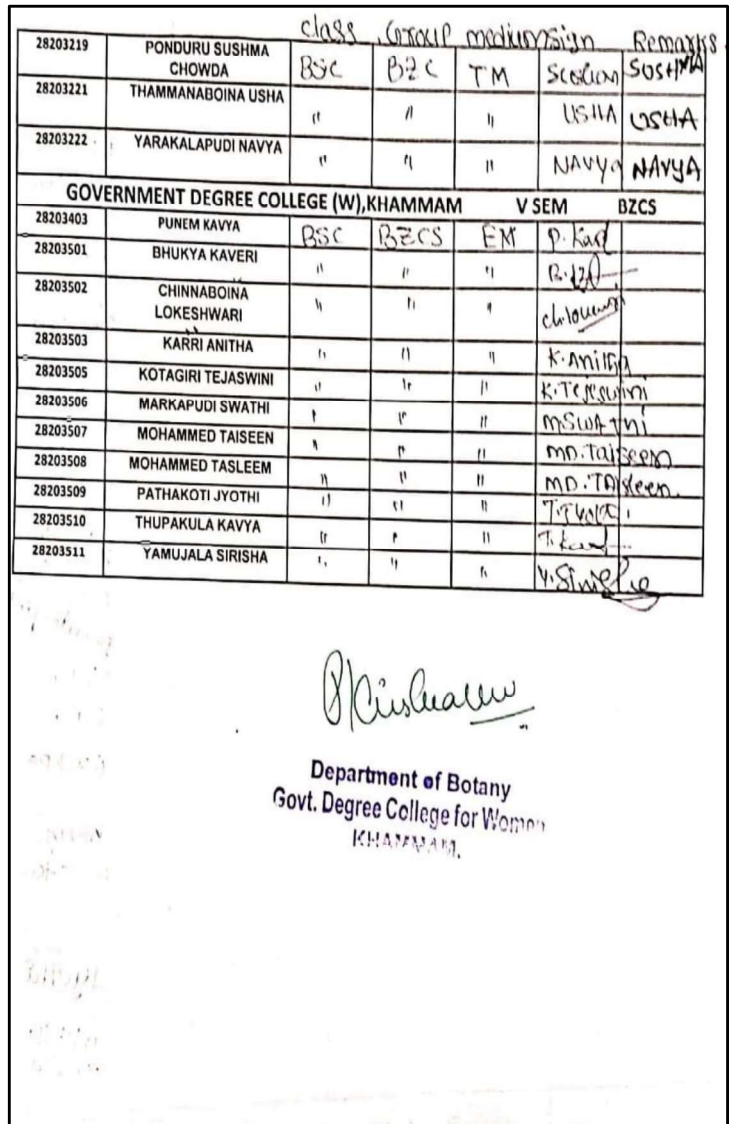 class Group medium sign Remarks
28203219 PONDURU SUSHMA CHOWDA BSC BZC TM SUSHMA
28203221 THAMMANABOINA USHA " " " USHA USHA
28203222 YARAKALAPUDI NAVYA " " " NAVYA NAVYA
GOVERNMENT DEGREE COLLEGE (W),KHAMMAM V SEM BZCS
28203403 PUNEM KAVYA BSC BZCS EM
28203501 BHUKYA KAVERI " " "
28203502 CHINNABOINA LOKESHWARI " " "
28203503 KARRI ANITHA " " " K.Anitha
28203505 KOTAGIRI TEJASWINI " " " K.Tejeswini
28203506 MARKAPUDI SWATHI " " " M SWATHI
28203507 MOHAMMED TAISEEN " " " MD.Taiseen
28203508 MOHAMMED TASLEEM " " " MD.TAsleen.
28203509 PATHAKOTI JYOTHI " " "
28203510 THUPAKULA KAVYA " " "
28203511 YAMUJALA SIRISHA " " "
Department of Botany
Govt. Degree College for Women
KHAMMAM.